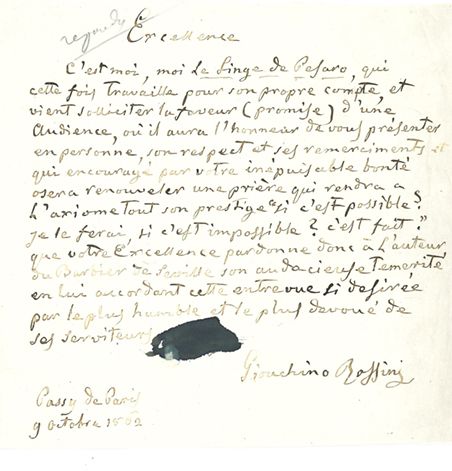 repondu
Excellence
C'est moi, moi Le Singe de Pesaro, qui
cette fois travaille pour son propre compte, et
vient solliciter la faveur (promise) d'une
Audience, où il aura l'honneur de vous présenter
en personne, son respect et ses remerciments et
qui encouragé par votre inépuisable bonté
osera renouveler une prière qui rendra a
L'axiome tout son prestige "si c'est possible?
Je le ferai, si c'est impossible? c'est fait."
que votre Excellence pardonne donc à L'auteur
du Barbier de Seville son audacieuse Temerité
en lui accordant cette entrevue si desirée
par le plus humble et le plus devoué de
ses serviteurs
Giouchino Rossini
Passy de Paris
9 Octobre 1862